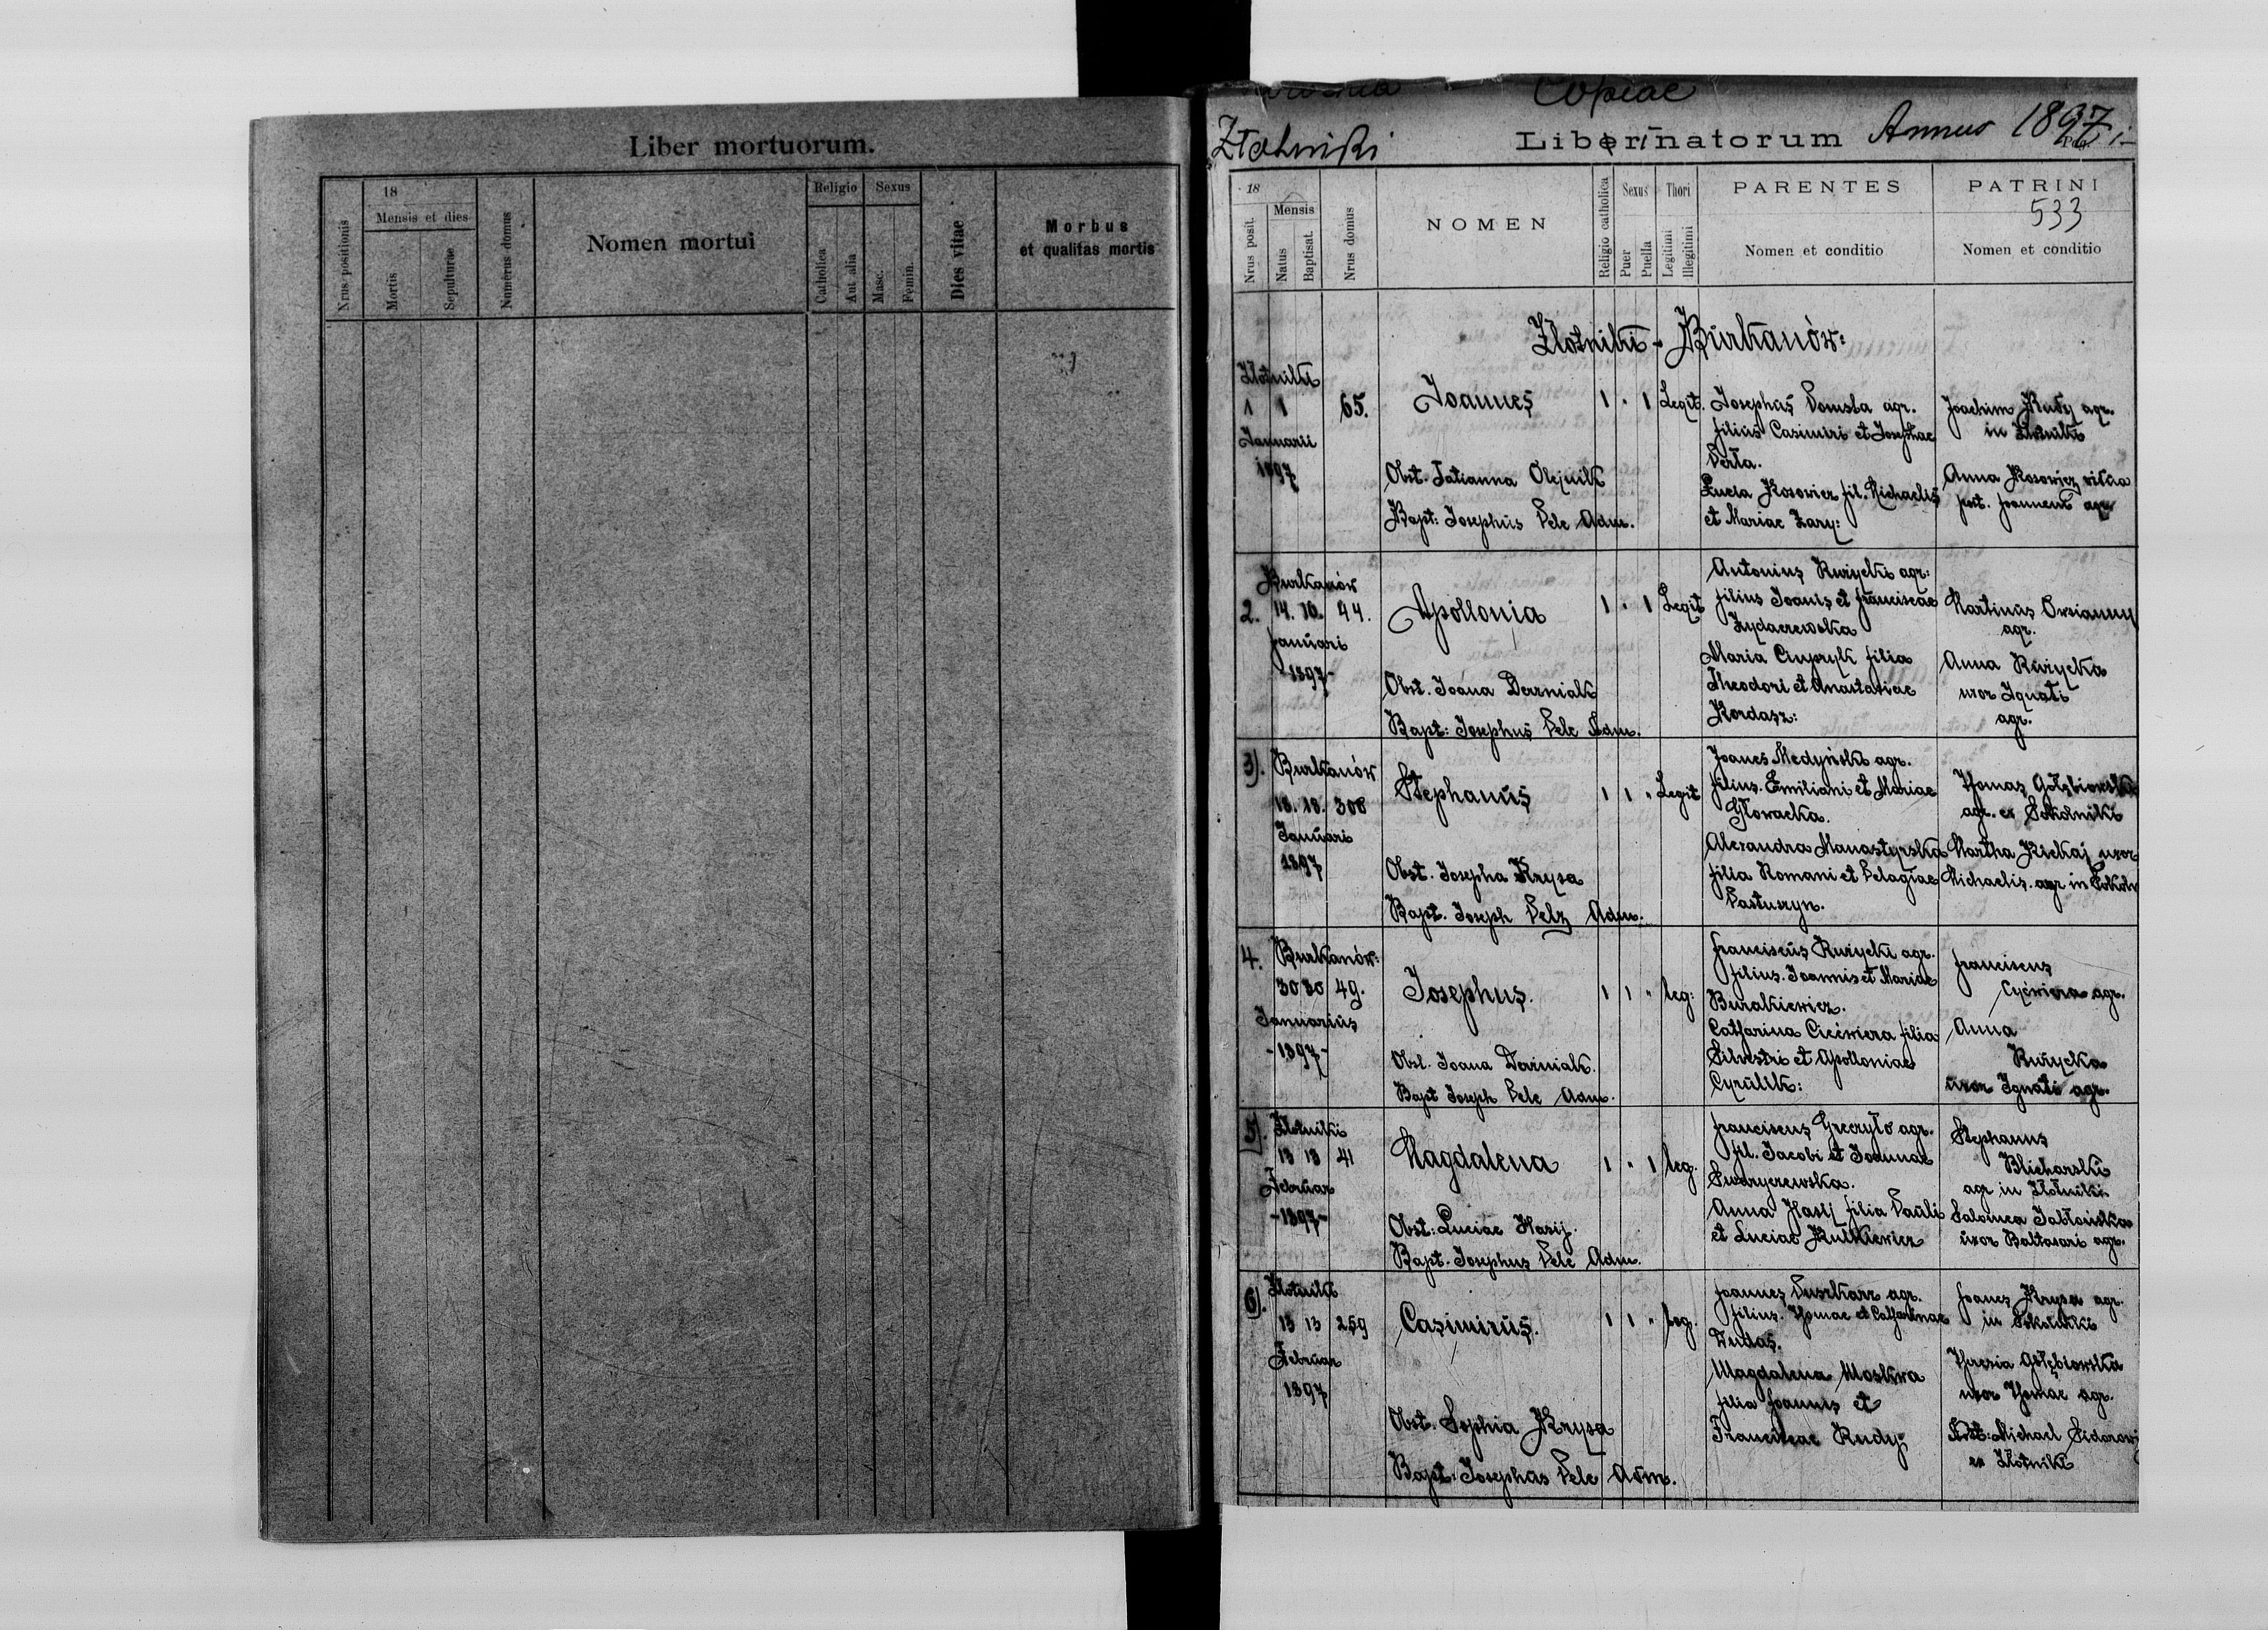 Liber mortuorum.
Nrus positionis
18
Mensis et dies
Mortis
Sepulturae
Numerus domus
Nomen mortui
Religio
Catholica
Aut alia
Sexus
Masc.
Femin.
Dies vitae
Morbus
et qualitas mortis
Copiae
Złotniki
Liber natorum Annus 1897
18
Nrus posit.
Mensis
Natus
Baptisat.
Nrus domus
NOMEN
Religio catholica
Sexus
Puer
Puella
Thori
Legitimi
Illegitimi
PARENTES
Nomen et conditio
PATRINI
533
Nomen et conditio
Złotniki - Burkanów:
Złotniki
1 1 65.
Januarii
1897
Joannes
Obst. Tatianna Olejnik
Bapt: Josephus Pelc Adm.
1 " 1 Legit.
Josephus agr.
filius Casimiri et Josephae
Perła.
Lucia Kosowicz fil. Michaelis
et Mariae Zary:
Joachim Rudy agr.
in Złotniki
Anna Kosowicz vidua
post. Joannem agr.
Burkanów
2. 14. 10. 44.
Januari
-1897-
Apollonia
Obst. Joana Derniak
Bapt: Josephus Pelc Adm.
1 " 1 Legit
Antonius Rużycki agr:
filius Joanis et Franciscae
Maria Ciupryk filia
Theodori et Anastasiae
Kordasz:
Martinus Owsianny
agr.
Anna Rużycka
uxor Ignati
agr.
3). Burkanów
18. 18. 308
Januari
1897
Stephanus
Obst. Josepha Krysa
Bapt. Joseph Pelz Adm.
1 1 " Legit
Joanes Medyński agr.
filius. Emiliani et Mariae
Głowacka.
Alexandra Manastyrska
filia Romani et Pelagiae
Pastuszyn.
Thomas Gołębiowski
agr. ex Sokolniki
Martha uxor
Michaelis. agr in
4. Burkanów:
30 30 49.
Januarius
-1897-
Josephus.
Obst. Joana Derniak.
Bapt Joseph Pelc Adm.
1 1 " leg:
Franciscus Rużycki agr.
filius. Joannis et Mariae
Burakiewicz.
Catharina Ciećwiera filia
Silvestri et Apolloniae
Cyrulik:
Franciscus
Cyćwiera agr.
Anna
Rużycka
uxor Ignati agr.
5). Złotniki
13 13 41
Februar
-1897-
Magdalena
Obst: Luciae Hasij.
Bapt. Josephus Pelc Adm.
1 " 1 leg.
Franciscus agr.
fil. Jacobi et Joannae
Anna Hasij filia Pauli
et Luciae Rutkiewicz
Stephanus
Blicharski
agr in Złotniki
Salomea Jabłońska
uxor Baltasari agr.
6). Złotniki
13 13 259
Februar
1897
Casimirus.
Obst. Sophia Krysa
Bapt: Josephus Pelc Adm.
1 1 " leg.
Joannes Puszkarz agr.
filius. Thomae et Catharinae
Dudas.
Magdalena Moskwa
filia Joannis et
Franciscae Rudy;
Joanes Krysa agr.
in Sokolniki
Theresia Gołębiowska
uxor Thomae agr.
Michael
ex Złotniki